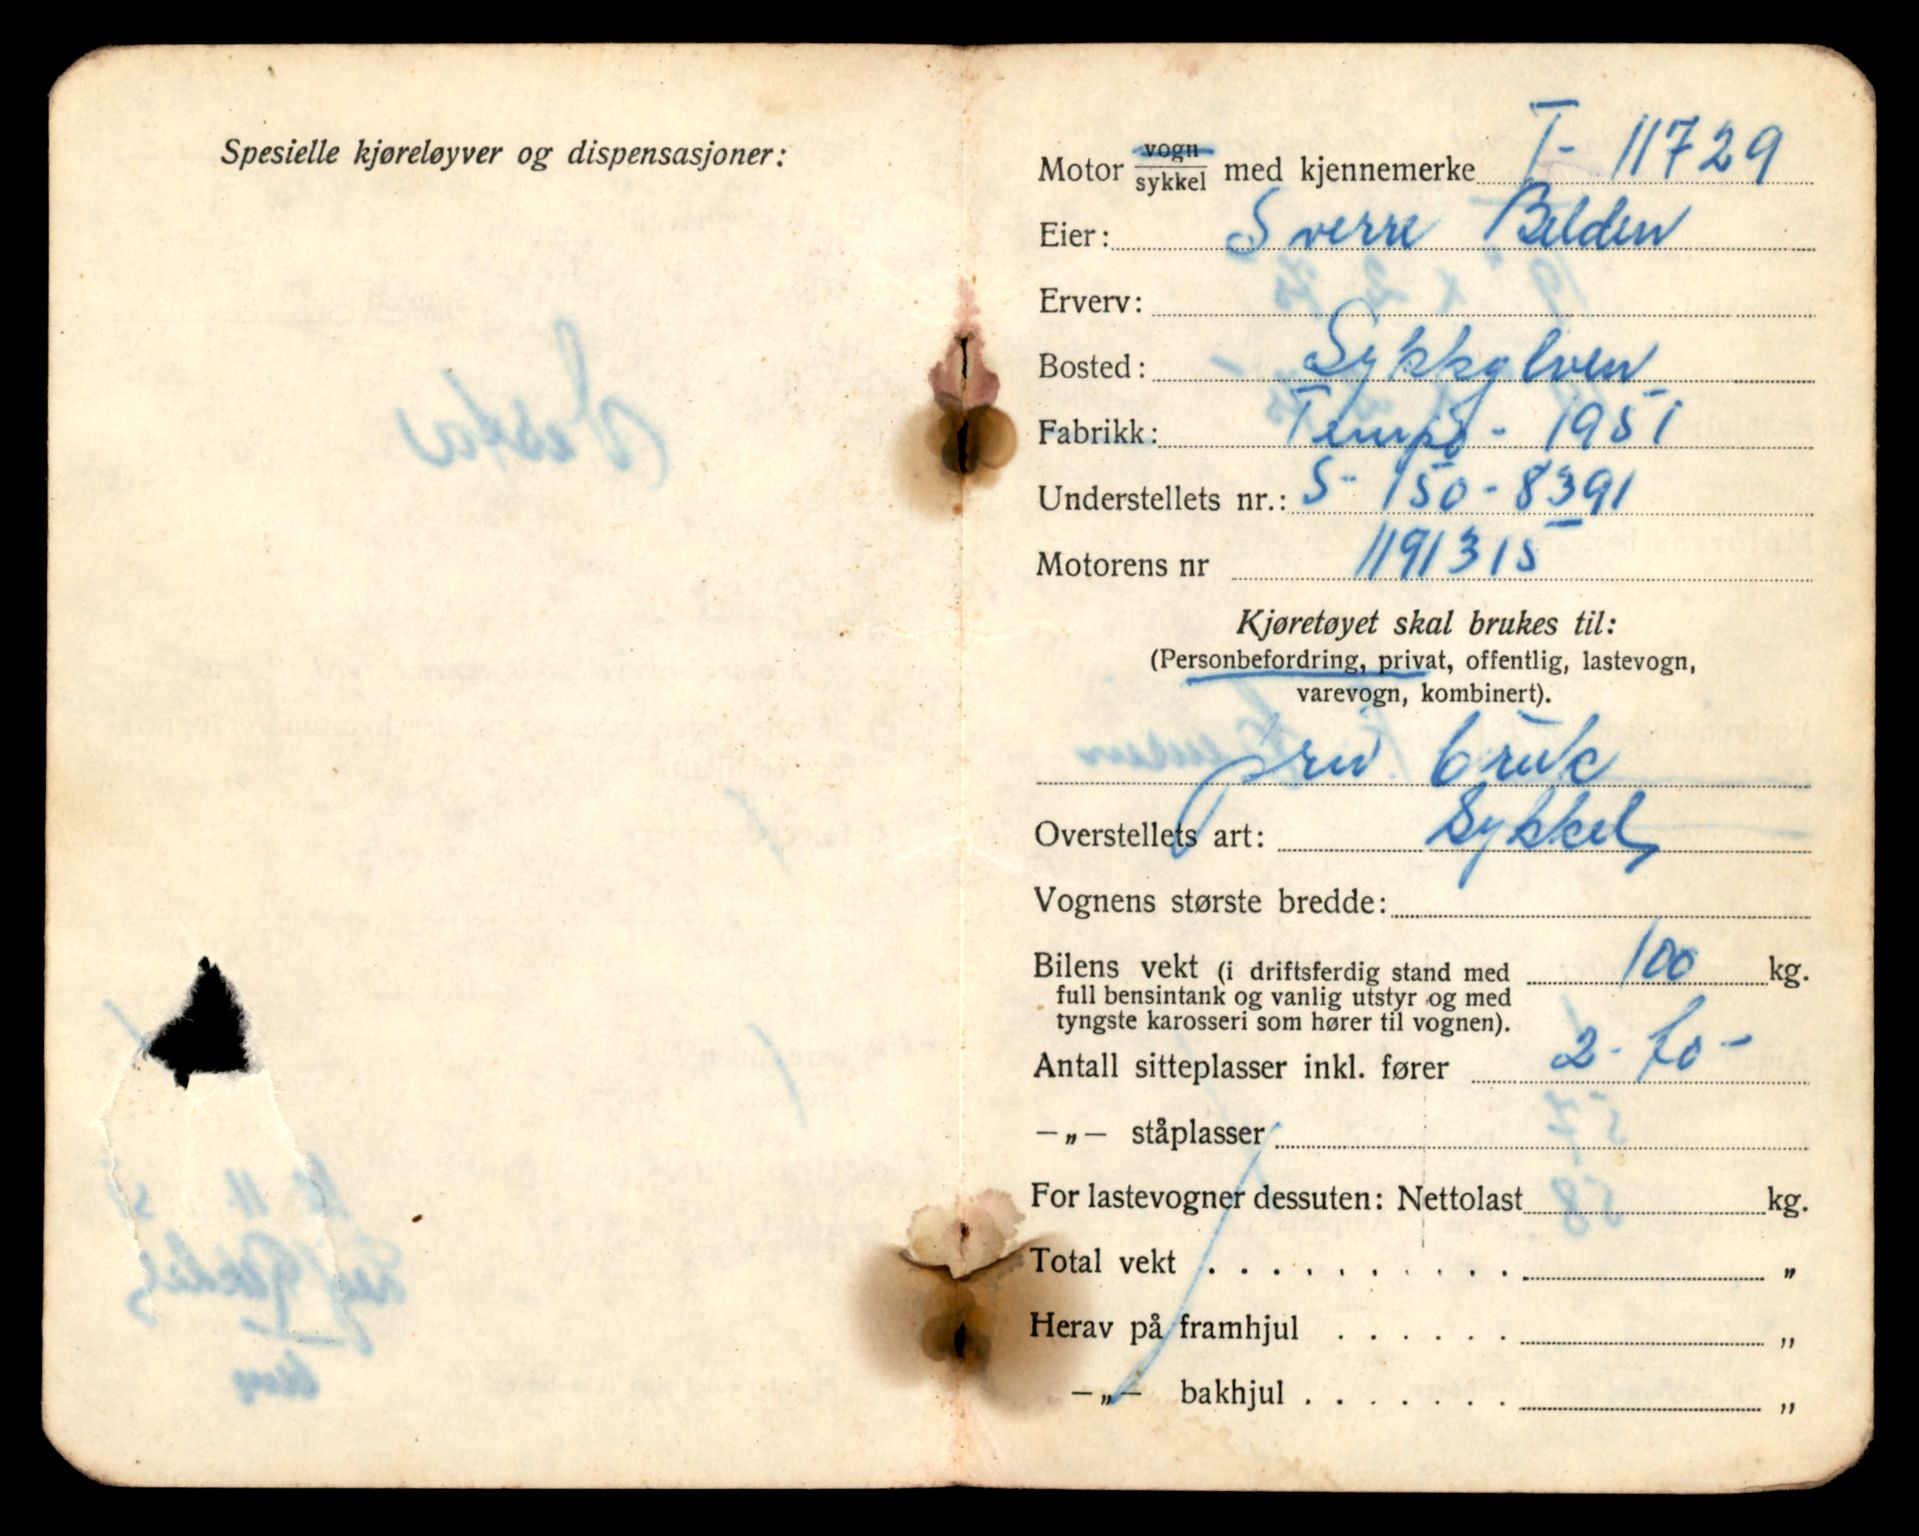 Spesielle kjøreløyver og dispensasjoner:
Motor vogn/sykkel med kjennemerke T- 11729
Eier: Sverre Belden
Erverv:
Bosted: Sykkylven
Fabrikk: Tempo - 1951
Understellets nr.: S- 150-8391
Motorens nr 1191315
Kjøretøyet skal brukes til:
(Personbefordring, privat, offentlig, lastevogn,
varevogn, kombinert).
priv bruk
Overstellets art: Sykkel
Vognens største bredde:
Bilens vekt (i driftsferdig stand med 100 kg.
full bensintank og vanlig utstyr og med
tyngste karosseri som hører til vognen).
Antall sitteplasser inkl. fører 2- to-
—„— ståplasser
For lastevogner dessuten: Nettolast kg.
Total vekt . . . . . . . . . . „
Herav på framhjul . . . . . . „
—„— bakhjul . . . . . . . „